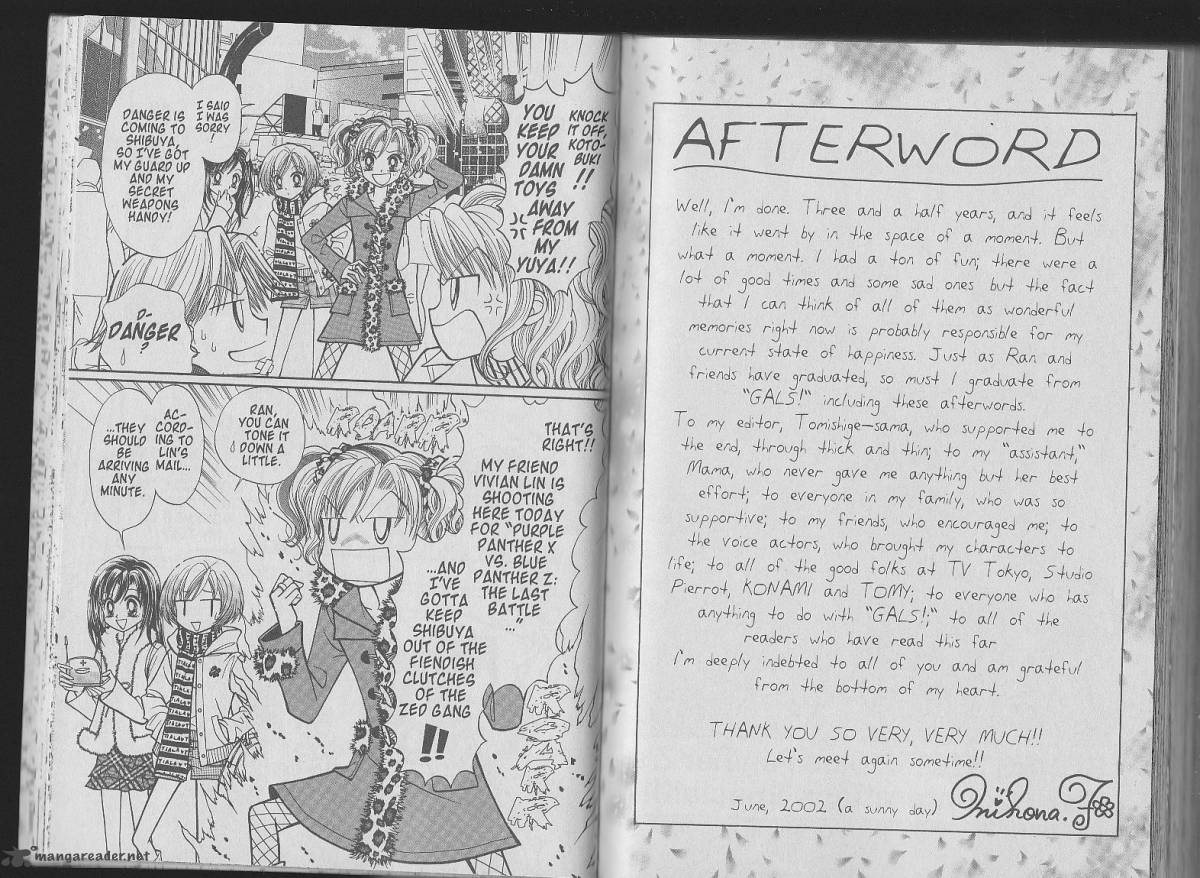 KNOCK
IT OFF,
KOTO-
BUKI
!!
YOU
KEEP
YOUR
DAMN
TOYS
AWAY
FROM
MY
YUYA!!
I SAID
I WAS
SORRY
!
DANGER IS
COMING TO
SHIBUYA,
SO I'VE GOT
MY GUARD UP
AND MY
SECRET
WEAPONS
HANDY!
D-
DANGER
?
THAT'S
RIGHT!!
MY FRIEND
VIVIAN LIN IS
SHOOTING
HERE TODAY
FOR "PURPLE
PANTHER X
VS. BLUE
PANTHER Z:
THE LAST
BATTLE
..."
...AND
I'VE
GOTTA
KEEP
SHIBUYA
OUT OF THE
FIENDISH
CLUTCHES
OF THE
ZED GANG
!!
ROARR
RAN,
YOU CAN
TONE IT
DOWN A
LITTLE.
AC-
CORD-
ING TO
LIN'S
MAIL...
...THEY
SHOULD
BE
ARRIVING
ANY
MINUTE.
mangareader.net
AFTERWORD
Well, I'm done. Three and a half years, and it feels
like it went by in the space of a moment. But
what a moment. I had a ton of fun; there were a
lot of good times and some sad ones but the fact
that I can think of all of them as wonderful
memories right now is probably responsible for my
current state of happiness. Just as Ran and
friends have graduated, so must I graduate from
"GALS!" including these afterwords.
To my editor, Tomishige-sama, who supported me to
the end, through thick and thin; to my "assistant,"
Mama, who never gave me anything but her best
effort; to everyone in my family, who was so
supportive; to my friends, who encouraged me; to
the voice actors, who brought my characters to
life; to all of the good folks at TV Tokyo, Studio
Pierrot, KONAMI and TOMY; to everyone who has
anything to do with "GALS!;" to all of the
readers who have read this far
I'm deeply indebted to all of you and am grateful
from the bottom of my heart.
THANK YOU SO VERY, VERY MUCH!!
Let's meet again sometime!!
June, 2002 (a sunny day)
Mihona.F